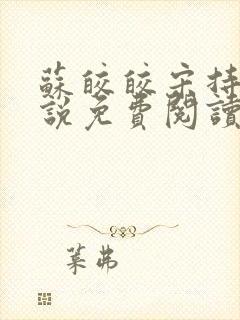 蘇皎皎宋持
說免費閱讀
葉弗